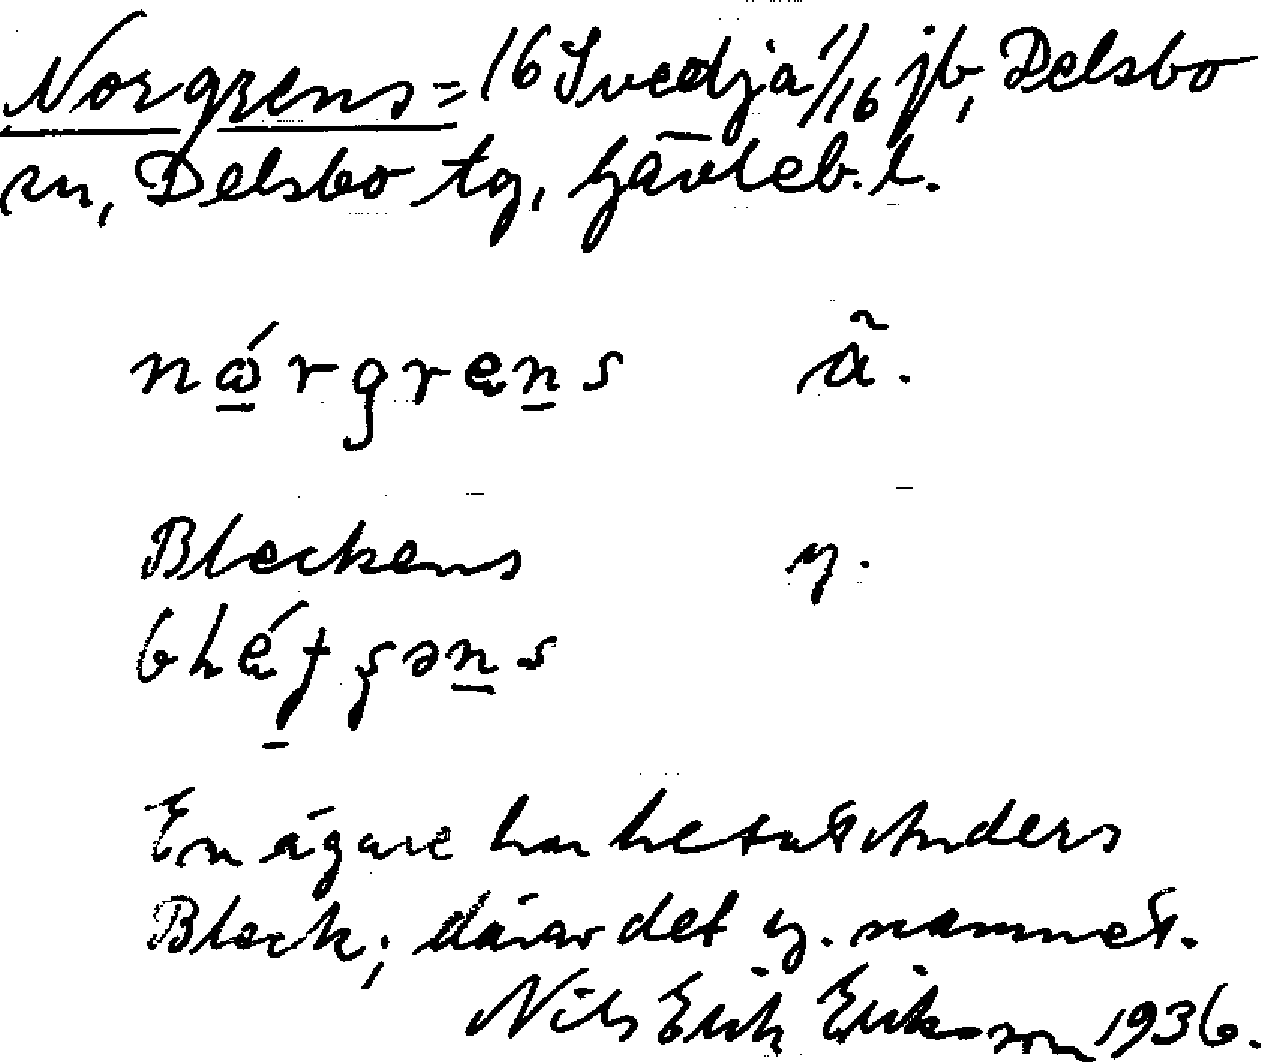 Norgrens = 16 Svedja 1/16 jb, Delsbo
sn, Delsbo tg, Gävleb. l.
nǻrgrens ä.
Bleckens y.
En ägare har hetat Anders
Bleck; därav det y. namnet.
Nils Erik Eriksson 1936.